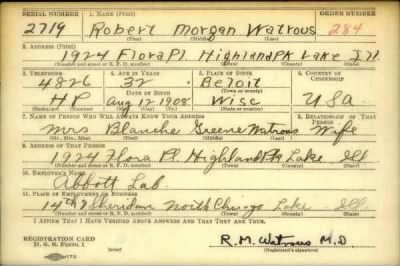 SERIAL NUMBER 1. NAME (Print) ORDER NUMBER
2719 Robert Morgan Watrous 284
(First) (Middle) (Last)
2. ADDRESS (Print)
1924 Flora Pl. Highland Pk Lake Ill.
(Number and street or R. F. D. number) (Town) (County) (State)
3. TELEPHONE 4. AGE IN YEARS 5. PLACE OF BIRTH 6. COUNTRY OF CITIZENSHIP
4826 32 Beloit
DATE OF BIRTH (Town or county)
HP Aug 12 1908 Wisc USA
(Exchange) (Mo.) (Day) (Yr.) (State or country)
7. NAME OF PERSON WHO WILL ALWAYS KNOW YOUR ADDRESS 8. RELATIONSHIP OF THAT PERSON
Mrs Blanche Greene Watrous Wife
(Mr., Mrs., Miss) (First) (Middle) (Last)
9. ADDRESS OF THAT PERSON
1924 Flora Pl Highland Pk Lake Ill
(Number and street or R. F. D. number) (Town) (County) (State)
10. EMPLOYER'S NAME
Abbott Lab.
11. PLACE OF EMPLOYMENT OR BUSINESS
14th & Sheridan North Chicago Lake Ill.
(Number and street or R. F. D. number) (Town) (County) (State)
I AFFIRM THAT I HAVE VERIFIED ABOVE ANSWERS AND THAT THEY ARE TRUE.
REGISTRATION CARD
D. S. S. Form 1
R.M. Watrous M.D
(Registrant's signature)